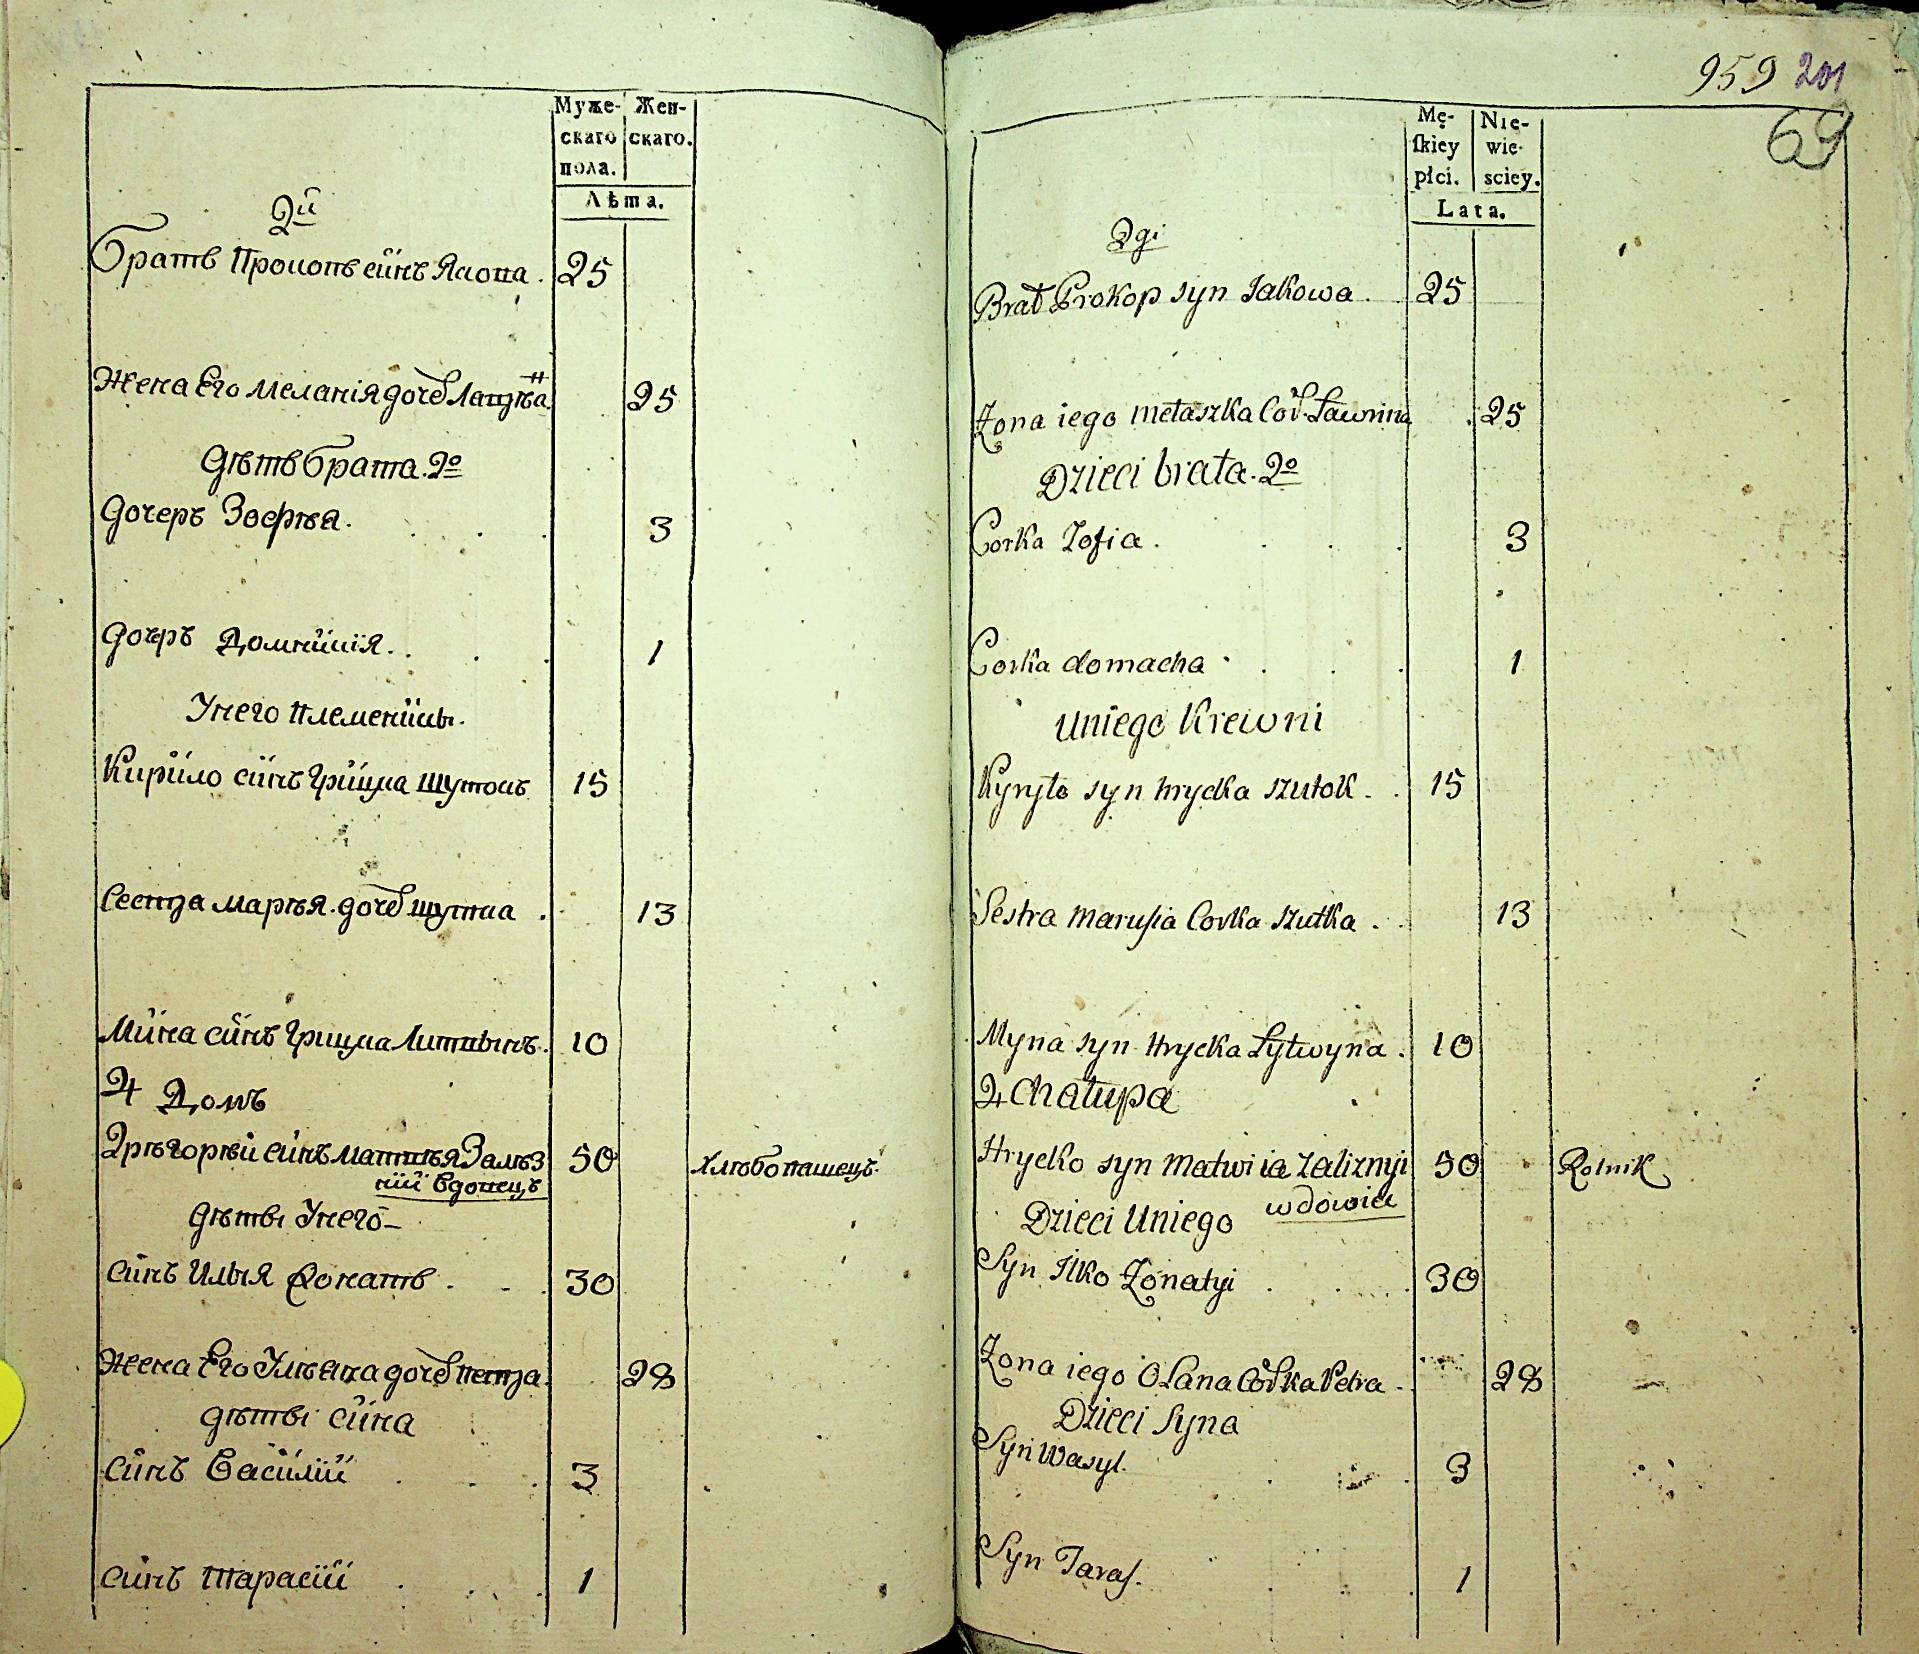 Муже- Жен-
скаго скаго.
пола.
Лѣта.
2й
братъ Прокопъ синъ Якова. 25
Жена Его Меланія дочь 25
Дѣтѣ брата. 2º
Дочеръ Зофѣя. 3
Дочеръ Домникія. 1
Унего племеники.
Кирило синъ Грицка Шутокъ 15
Сестра Марѣя. дочь Шутка. 13
Мина синъ Грицка Литвинъ. 10
4 Домъ
Грѣгорѣй синъ Матвѣя Залѣз 50 Хлѣбопашецъ.
ній Вдовецъ
Дѣтѣ Унего
синъ Илья Жонатъ. 30
Жена Его Улѣяна дочь Петра. 28
Дѣтѣ Сина
синъ Василій 3
синъ Тарасій 1
959 201
69
Mę- Nie-
ſkiey wie-
płci. sciey.
Lata.
2gi
Brat Prokop syn Jakowa. 25
Żona iego Metaszka Cor. Ławrina 25
Dzieci brata. 2º
Corka Zofia. 3
Corka domacha 1
Uniego Krewni
Kyryło syn hrycka szutok. 15
Sestra Marusia Corka szutka. 13
Myna syn Hrycka Lytwyna. 10
4 Chałupa
Hrycko syn Matwiia Zaliznyi 50 Rolnik
wdowiec
Dzieci Uniego
Syn Ilko Żonatyi 30
Żona iego Olana Corka Petra. 28
Dzieci Syna
Syn Wasyl. 3
Syn Taras. 1